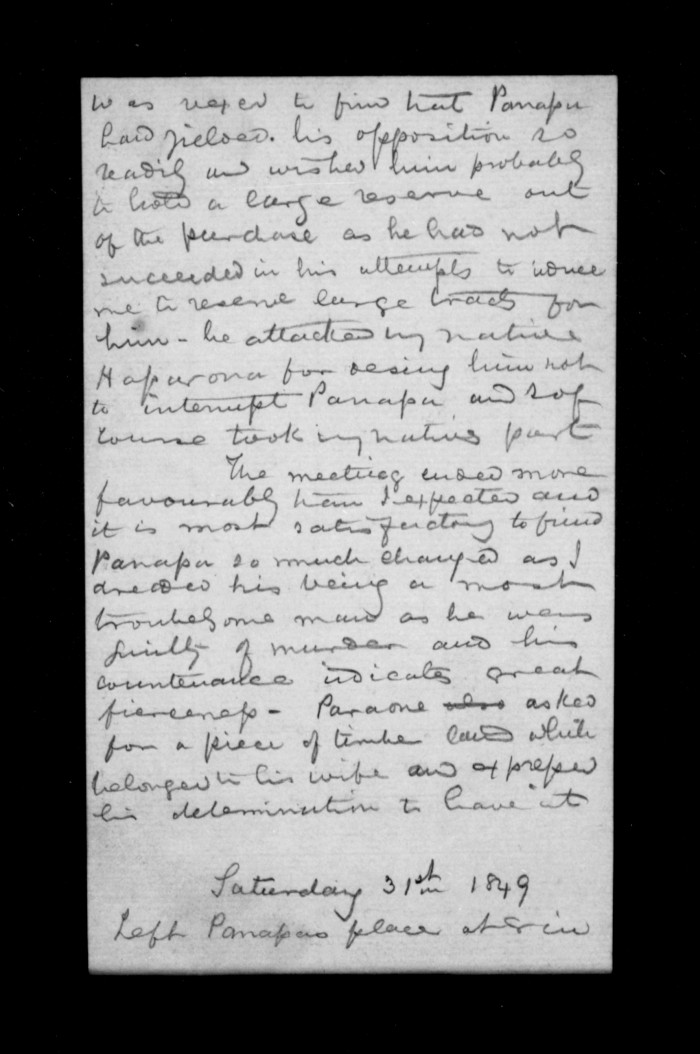 was vexed to find that Panapa
had yielded his opposition so
readily and wished him probably
to hold a large reserve out
of the purchase as he had not
succeeded in his attempts to induce
me to reserve large tracts for
him - he attacked my native
Haparona for desiring him not
to interrupt Panapa and I of
course took my natives part
The meeting ended more
favourably than I expected and
it is most satisfactory to find
Panapa so much changed as I
dreaded his being a most
troublesome man as he was
guilty of murder and his
countenance indicates great
fierceness - Paraone also asked
for a piece of timber land which
belonged to his wife and expressed
his determination to have it
Saturday 31st 1849
Left Panapas place at 8 in